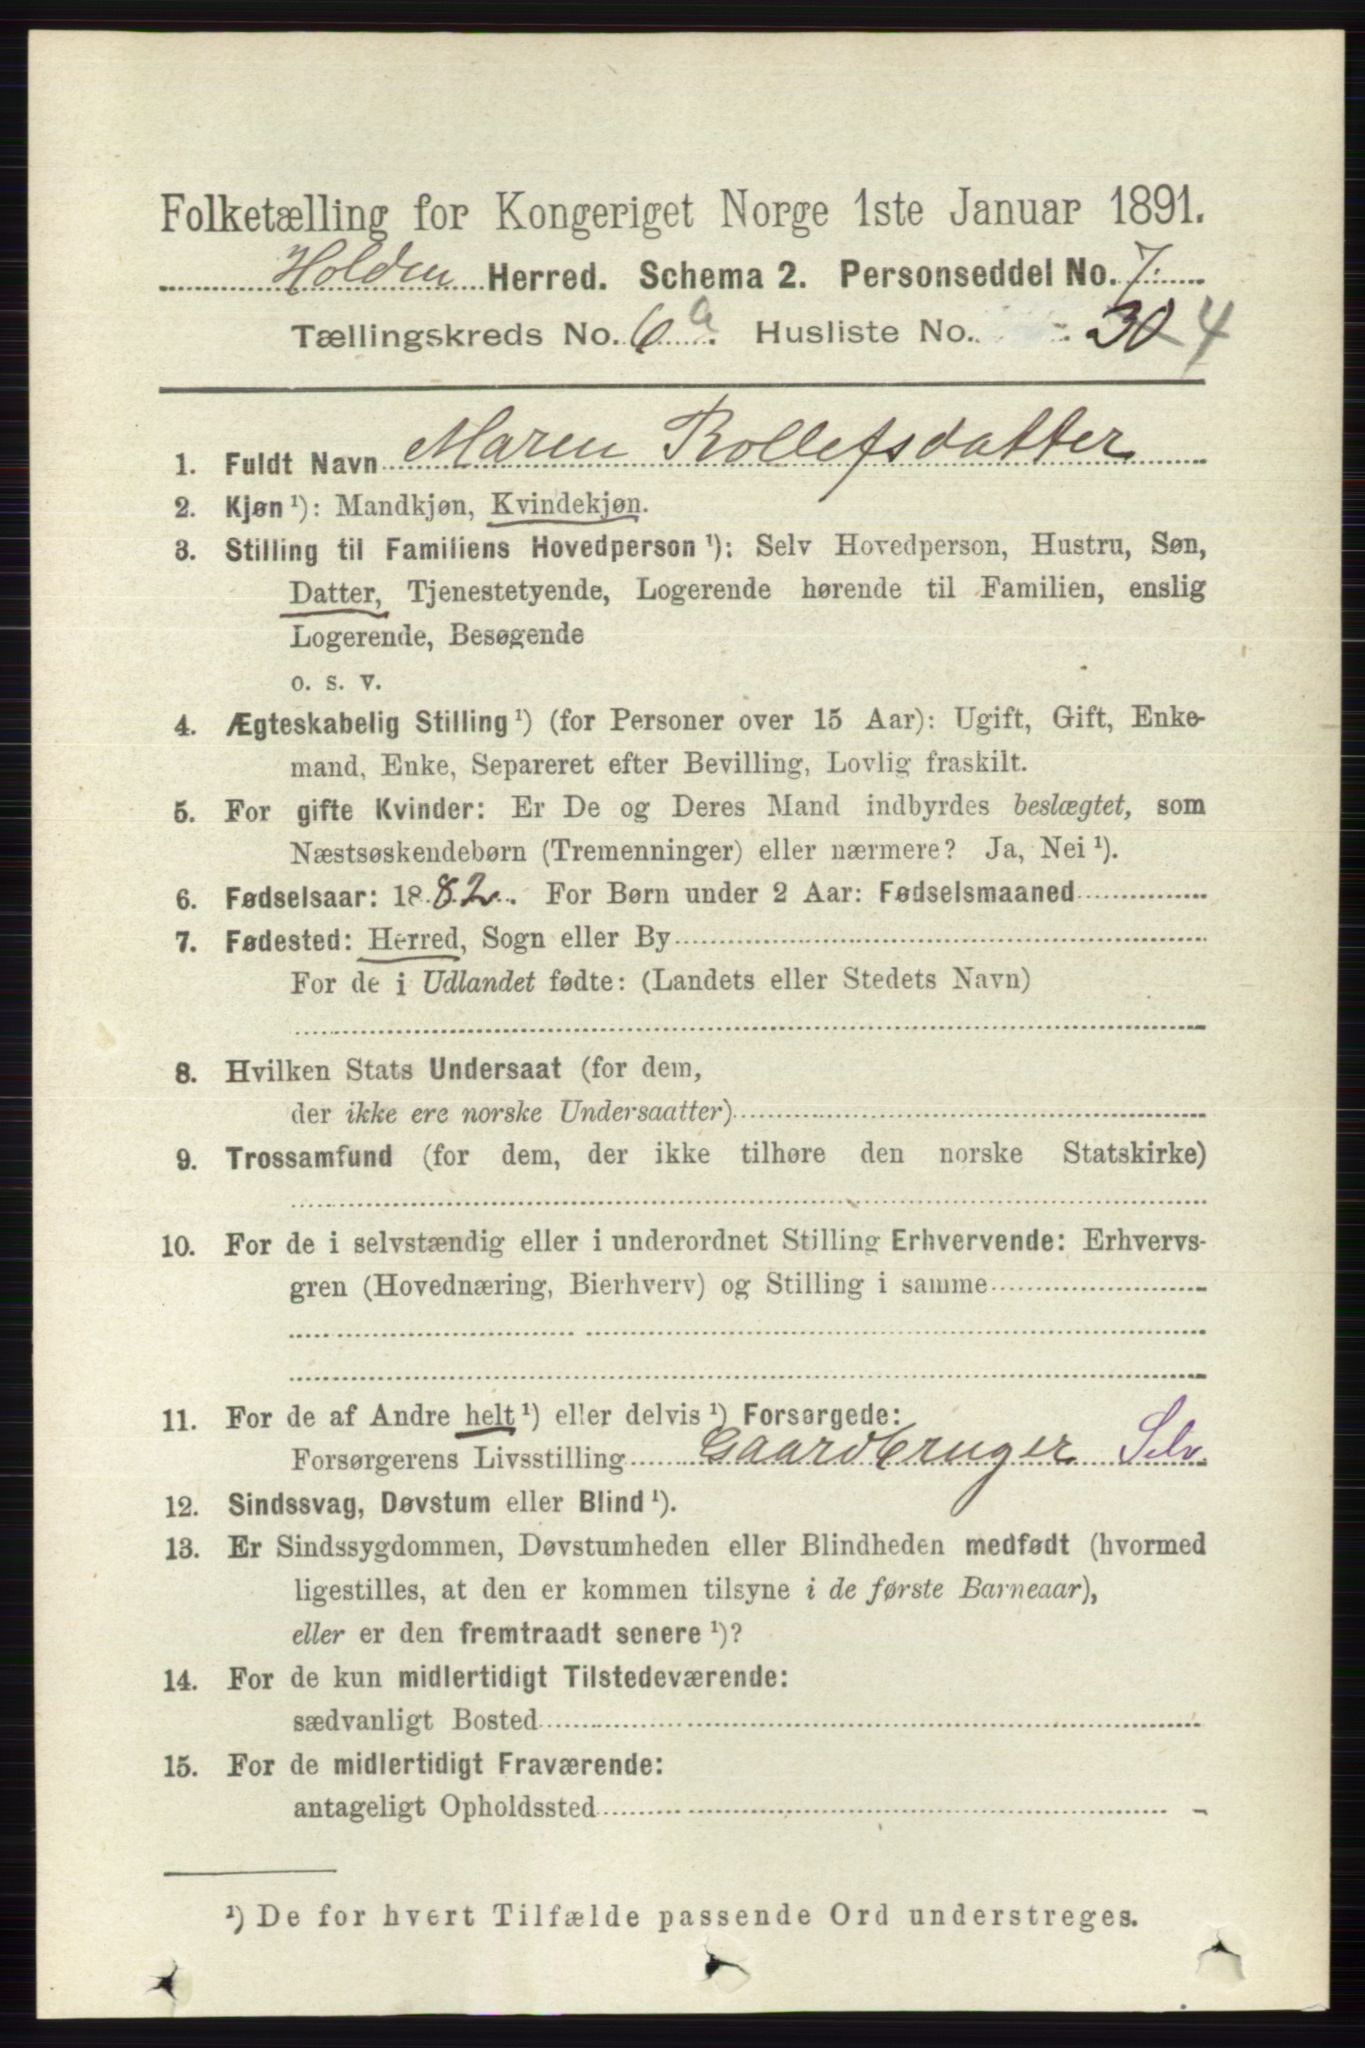 Folketælling for Kongeriget Norge 1ste Januar 1891.
Holden Herred. Schema 2. Personseddel No. 7.
Tællingskreds No. 6a. Husliste No. 30 4
1. Fuldt Navn Maren Rollefsdatter
2. Kjøn ¹): Mandkjøn, Kvindekjøn.
3. Stilling til Familiens Hovedperson ¹): Selv Hovedperson, Hustru, Søn,
Datter, Tjenestetyende, Logerende hørende til Familien, enslig
Logerende, Besøgende
o. s. v.
4. Ægteskabelig Stilling ¹) (for Personer over 15 Aar): Ugift, Gift, Enke-
mand, Enke, Separeret efter Bevilling, Lovlig fraskilt.
5. For gifte Kvinder: Er De og Deres Mand indbyrdes beslægtet, som
Næstsøskendebørn (Tremenninger) eller nærmere? Ja, Nei ¹).
6. Fødselsaar: 1882. For Børn under 2 Aar: Fødselsmaaned
7. Fødested: Herred, Sogn eller By
For de i Udlandet fødte: (Landets eller Stedets Navn)
8. Hvilken Stats Undersaat (for dem,
der ikke ere norske Undersaatter)
9. Trossamfund (for dem, der ikke tilhøre den norske Statskirke)
10. For de i selvstændig eller i underordnet Stilling Erhvervende: Erhvervs-
gren (Hovednæring, Bierhverv) og Stilling i samme
11. For de af Andre helt ¹) eller delvis ¹) Forsørgede:
Forsørgerens Livsstilling Gaardbruger Selv
12. Sindssvag, Døvstum eller Blind ¹).
13. Er Sindssygdommen, Døvstumheden eller Blindheden medfødt (hvormed
ligestilles, at den er kommen tilsyne i de første Barneaar),
eller er den fremtraadt senere ¹)?
14. For de kun midlertidigt Tilstedeværende:
sædvanligt Bosted
15. For de midlertidigt Fraværende:
antageligt Opholdssted
¹) De for hvert Tilfælde passende Ord understreges.